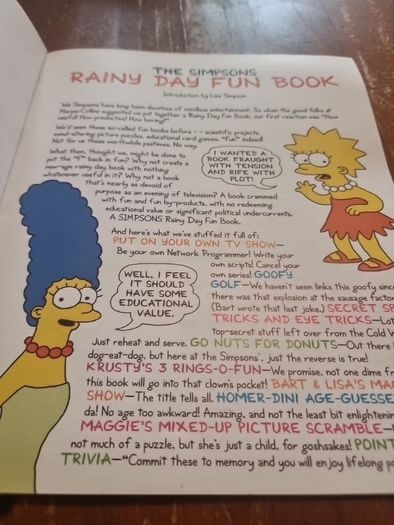 THE SIMPSONS
RAINY DAY FUN BOOK
Introduction by Lisa Simpson
We Simpsons have long been devotees of mindless entertainment. So when the good folks at
HarperCollins suggested we put together a Rainy Day Fun Book, our first reaction was "How
useful! How productive! How boring!"
We'd seen these so-called fun books before – scientific projects,
mind-altering picture puzzles, educational card games. "Fun" indeed!
Not for us these worthwhile pastimes. No way.
What then, thought we, might be done to
put the "F" back in fun? Why not create a
new-age rainy day book with nothing
whatsoever useful in it? Why not a book
that's nearly as devoid of
purpose as an evening of television? A book crammed
with fun and fun by-products, with no redeeming
educational value or significant political undercurrents.
A SIMPSONS Rainy Day Fun Book.
I WANTED A
BOOK FRAUGHT
WITH TENSION
AND RIFE WITH
PLOT!
And here's what we've stuffed it full of:
PUT ON YOUR OWN TV SHOW—
Be your own Network Programmer! Write your
own scripts! Cancel your
own series! GOOFY
GOLF—We haven't seen links this goofy since
there was that explosion at the sausage factor
(Bart wrote that last joke.) SECRET SP
TRICKS AND EYE TRICKS—Lot
top-secret stuff left over from the Cold W
WELL, I FEEL
IT SHOULD
HAVE SOME
EDUCATIONAL
VALUE.
Just reheat and serve. GO NUTS FOR DONUTS—Out there i
dog-eat-dog, but here at the Simpsons', just the reverse is true!
KRUSTY'S 3 RINGS-O-FUN—We promise, not one dime fr
this book will go into that clown's pocket! BART & LISA'S MAG
SHOW—The title tells all. HOMER-DINI AGE-GUESSE
da! No age too awkward! Amazing, and not the least bit enlightenin
MAGGIE'S MIXED-UP PICTURE SCRAMBLE—
not much of a puzzle, but she's just a child, for goshsakes! POINT
TRIVIA—"Commit these to memory and you will enjoy lifelong po